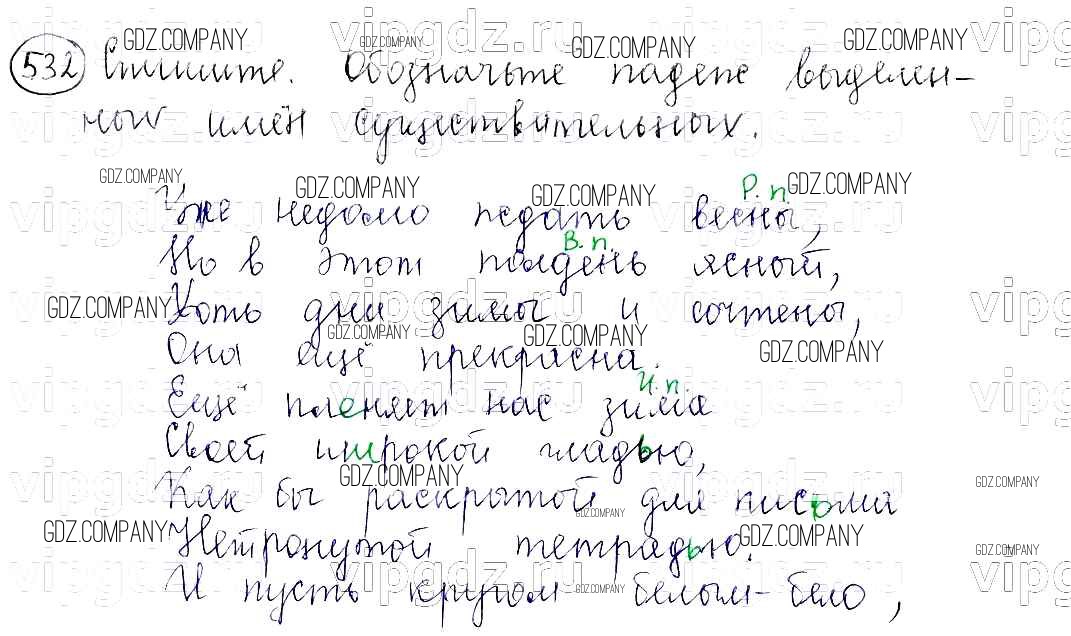 532 Спишите. Обозначьте падеж выделен-
ных имён существительных.
Р. п.
Уже недолго ждать весны,
В. п.
Но в этот полдень ясный,
Хоть дни зимы и сочтены,
Она ещё прекрасна.
И. п.
Ещё пленяет нас зима
Своей широкой гладью,
Как бы раскрытой для письма
Нетронутой тетрадью.
И пусть кругом белым-бело,